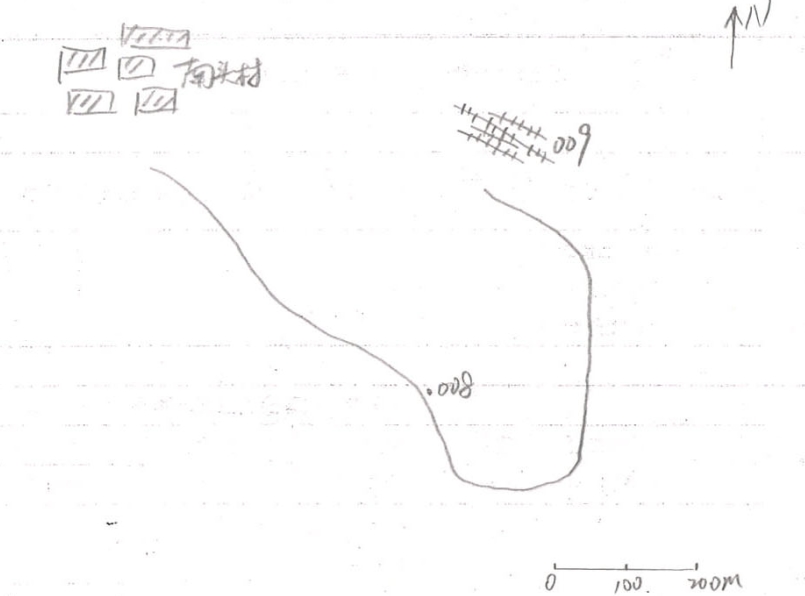 N
南头村
009
.008
0 100. 200M